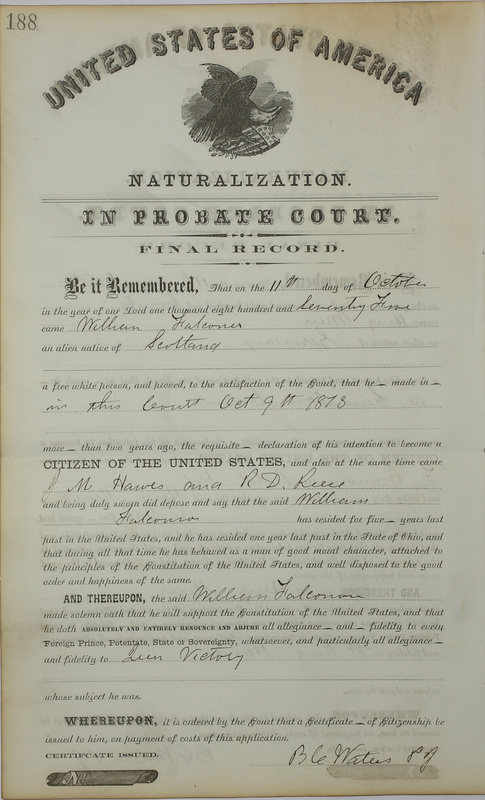 188
UNITED STATES OF AMERICA
NATURALIZATION.
IN PROBATE COURT.
FINAL RECORD.
Be it Remembered, That on the 11th day of October
in the year of our Lord one thousand eight hundred and Seventy Five
came William Falconer
an alien native of Scotland
a free white person, and proved, to the satisfaction of the Court, that he made in
in this Court Oct 9th 1873
more than two years ago, the requisite declaration of his intention to become a
CITIZEN OF THE UNITED STATES, and also at the same time came
J M Hawes and R. D. Reece
and being duly sworn did depose and say that the said William
Falconer has resided for five years last
past in the United States, and he has resided one year last past in the State of Ohio, and
that during all that time he has behaved as a man of good moral character, attached to
the principles of the Constitution of the United States, and well disposed to the good
order and happiness of the same.
AND THEREUPON, the said William Falconer
made solemn oath that he will support the Constitution of the United States, and that
he doth ABSOLUTELY AND ENTIRELY RENOUNCE AND ABJURE all allegiance and fidelity to every
Foreign Prince, Potentate, State or Sovereignty, whatsoever, and particularly all allegiance
and fidelity to Queen Victory
whose subject he was.
WHEREUPON, it is ordered by the Court that a Certificate of Citizenship be
issued to him, on payment of costs of this application.
CERTIFCATE ISSUED.
B C Waters P J
No.